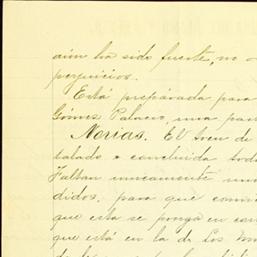 aún ha sido fuerte, no
perjuicios.
Está preparada para
Gómez Palacio, una
Norias. El tren de
talado o concluida toda
Faltan unicamente
didos, para que
que esta se ponga en
que está en la de Los